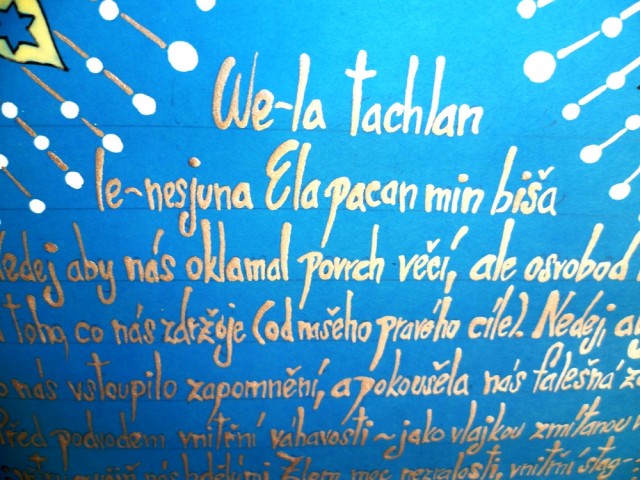 We-la tachlan
le-nesjuna Ela pacan min biša
Nedej aby nás oklamal povrch věcí, ale osvoboď
toho, co nás zdržuje (od našeho pravého cíle). Nedej, a
nás vstoupilo zapomnění, a pokoušela nás falešná
Před podvodem vnitřní váhavosti - jako vlajkou zmítanou v
nás Zlem moc nezralosti, vnitřní stag-